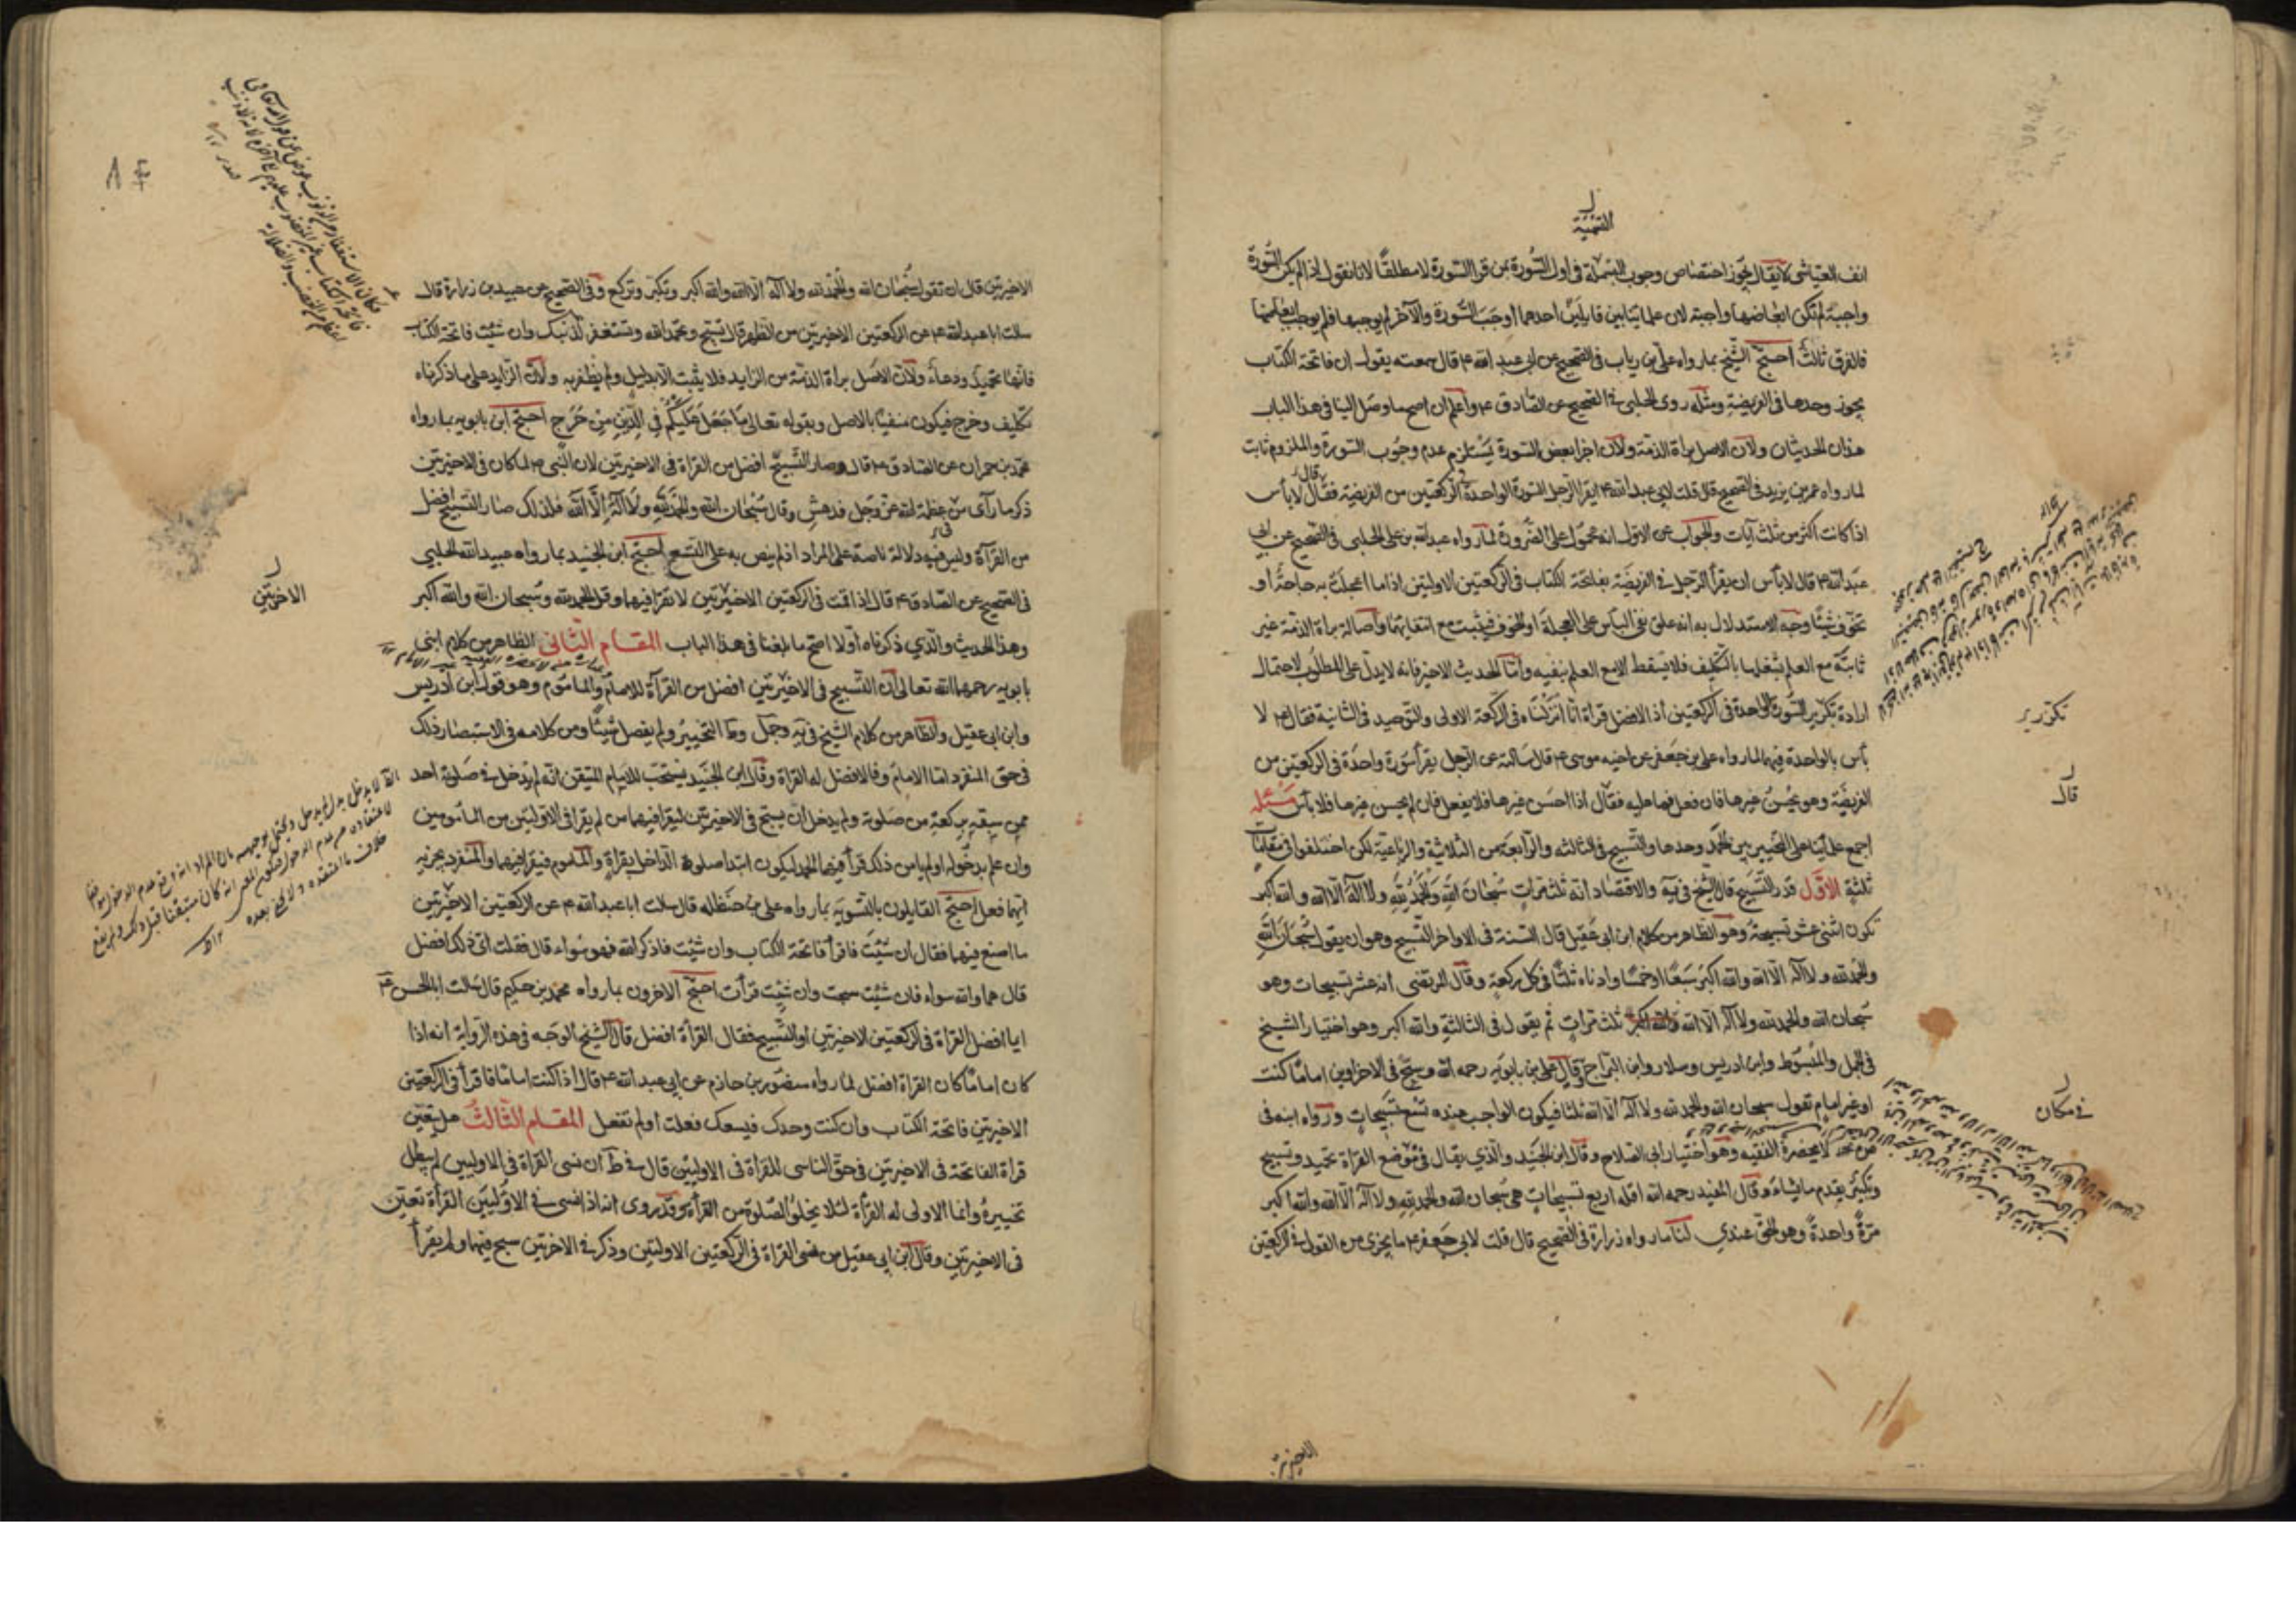 التقية
انف العياشى لا يقال يجوز اختصاص وجوب البسملة فى اول السورة بمن قرا السورة لا مطلقًا لانا نقول اذا لم يكن السورة
واجبة لم تكن ابعاضها واجبة لان علمائنا بين قايلين احدهما اوجب السورة والآخر لم يوجبها فلم يوجب ابعاضها
فالفرق ثالث احتج الشيخ بما رواه على بن رياب فى الصحيح عن ابى عبد الله ع قال سمعته يقول ان فاتحة الكتاب
يجوز وحدها فى الفريضة ومثله روى الحلبى فى الصحيح عن الصادق ع واعلم ان اصح ما وصل الينا فى هذا الباب
هذان الحديثان ولان الاصل براة الذمة ولان اجزا بعض السورة يستلزم عدم وجوب السورة والملزوم ثابت
لما رواه عمر بن يزيد فى الصحيح قال قلت لابى عبد الله ع ايقرا الرجل السورة الواحدة فى الركعتين من الفريضة فقال لا باس
اذا كانت اكثر من ثلث آيات والجواب عن الاول انه محمول على الضرورة لما رواه عبد الله بن على الحلبى فى الصحيح عن ابى
عبد الله ع قال لا باس ان يقرأ الرجل فى الفريضة بفاتحة الكتاب فى الركعتين الاوليتين اذا ما اعجلت به حاجة او
تخوف شيئا وجه الاستدلال به انه علق نفى الباس على العجلة او الخوف فيثبت مع انتفائهما واصالة براة الذمة غير
ثابتة مع العلم بشغلها بالتكليف فلا يسقط الا مع العلم بنفيه واما الحديث الاخير فانه لا يدل على المطلوب لاحتمال
ارادة تكرير السورة الواحدة فى الركعتين اذ الافضل قراة انا انزلناه فى الركعة الاولى والتوحيد فى الثانية فقال ع لا
بأس بالواحدة فيهما لما رواه على بن جعفر عن اخيه موسى ع قال سالته عن الرجل يقرأ سورة واحدة فى الركعتين من
الفريضة وهو يحسن غيرها فان فعل فما عليه فقال اذا احسن غيرها فلا يفعل فان لم يحسن غيرها فلا بأس مسئلة
اجمع علمائنا على التخيير بين الحمد وحدها والتسبيح فى الثالثة والرابعة من الثلاثية والرباعية لكن اختلفوا فى مقامات
ثلثة الاول قدر التسبيح قال الشيخ فى يه والاقتصاد انه ثلث مرات سبحان الله والحمد لله ولا اله الا الله والله اكبر
تكون اثنى عشر تسبيحة وهو الظاهر من كلام ابن ابى عقيل قال السنة فى الاواخر التسبيح وهو ان يقول سبحان الله
والحمد لله ولا اله الا الله والله اكبر سبعًا او خمسًا وادناه ثلثًا فى كل ركعة وقال المرتضى انه عشر تسبيحات وهو
سبحان الله والحمد لله ولا اله الا الله والله اكبر ثلث مرات ثم يقول فى الثالثة والله اكبر وهو اختيار الشيخ
فى الجمل والمبسوط وابن ادريس وسلار وابن البراج وقال على بن بابويه رحمه الله وسبح فى الاخراوين اماما كنت
او غير امام تقول سبحان الله والحمد لله ولا اله الا الله ثلثا فيكون الواجب عنده تسع تسبيحات ورواه ابنه فى
من لا يحضره الفقيه وهو اختيار ابى الصلاح وقال ابن الجنيد والذي يقال فى موضع القراة تحميد وتسبيح
وتكبير يقدم ما يشاء وقال المفيد رحمه الله اقله اربع تسبيحات هى سبحان الله والحمد لله ولا اله الا الله والله اكبر
مرة واحدة وهو الحق عندي لنا ما رواه زرارة فى الصحيح قال قلت لابى جعفر ع ما يجزى من القول فى الركعتين
تكرير
قال
فى مكان
الاخيرتين
٨٤
الاخيرتين قال ان تقول سبحان الله والحمد لله ولا اله الا الله والله اكبر وتكبر وتركع وفى الصحيح عن عبيد بن زرارة قال
سالت ابا عبد الله ع عن الركعتين الاخيرتين من الظهر قال تسبح وتحمد الله وتستغفر لذنبك وان شئت فاتحة الكتاب
فانها تحميد ودعاء ولان الاصل براة الذمة من الزايد فلا يثبت الا بدليل ولم نظفر به ولان الزايد على ما ذكرناه
تكليف وحرج فيكون منفيا بالاصل وبقوله تعالى ما جعل عليكم فى الدين من حرج احتج ابن بابويه بما رواه
محمد بن حمران عن الصادق ع قال وصار التسبيح افضل من القراة فى الاخيرتين لان النبى ص لما كان فى الاخيرتين
ذكر ما رآى من عظمة الله عز وجل فدهش وقال سبحان الله والحمد لله ولا اله الا الله فلذلك صار التسبيح افضل
من القرآة وليس فيه دلالة ناصة على المراد اذ لم ينص به على التسع احتج ابن الجنيد بما رواه عبيد الله الحلبي
فى الصحيح عن الصادق ع قال اذا قمت فى الركعتين الاخيرتين لا تقرا فيهما وقل الحمد لله وسبحان الله والله اكبر
وهذا الحديث والذي ذكرناه اولا اصح ما بلغنا فى هذا الباب المقام الثانى الظاهر من كلام ابنى
بابويه رحمهما الله تعالى ان التسبيح فى الاخيرتين افضل من القرآة للامام والماموم وهو قول ابن ادريس
وابن ابى عقيل والظاهر من كلام الشيخ فى يه وجمل وط التخيير ولم يفصل شيئًا ومن كلامه فى الاستبصار ذلك
فى حق المنفرد اما الامام وفالافضل له القراة وقال ابن الجنيد يستحب للامام المتيقن انه لم يدخل فى صلوته احد
ممن سبقه بركعة من صلوته ولم يدخل ان يسبح فى الاخيرتين ليقرا فيهما من لم يقرا فى الاوليتين من المأمومين
وان علم بدخوله او لم يامن ذلك قرأ فيهما الحمد ليكون ابتدا صلوة الداخل بقراة والماموم فيقرا فيهما والمنفرد يجزيه
ايهما فعل احتج القايلون بالتسوية بما رواه على بن حنظله قال سالت ابا عبد الله ع عن الركعتين الاخيرتين
ما اصنع فيهما فقال ان شئت فاقرأ فاتحة الكتاب وان شئت فاذكر الله فهو سواء قال فقلت اى ذلك افضل
قال هما والله سواء فان شئت سبحت وان شئت قرأت احتج الاخرون بما رواه محمد بن حكيم قال سالت ابا الحسن ع
ايما افضل القراة فى الركعتين الاخيرتين او التسبيح فقال القرأة افضل قال الشيخ الوجه فى هذه الرواية انه اذا
كان اماما كان القراة افضل لما رواه منصور بن حازم عن ابى عبد الله ع قال اذا كنت اماما فاقرأ فى الركعتين
الاخيرتين فاتحة الكتاب وان كنت وحدك فيسعك فعلت او لم تفعل المقام الثالث هل يتعين
قراة الفاتحة فى الاخيرتين فى حق الناسى للقراة فى الاوليين قال فى ط ان نسى القراة فى الاوليين لم يبطل
تخييره وانما الاولى له القرأة لئلا يخلوا الصلوة من القرأة وقد روى انه اذا نسى فى الاوليين القرأة تعين
فى الاخيرتين وقال ابن ابى عقيل من نسى القراة فى الركعتين الاوليتين وذكر فى الاخرتين سبح فيهما ولم يقرأ
الاخرتين